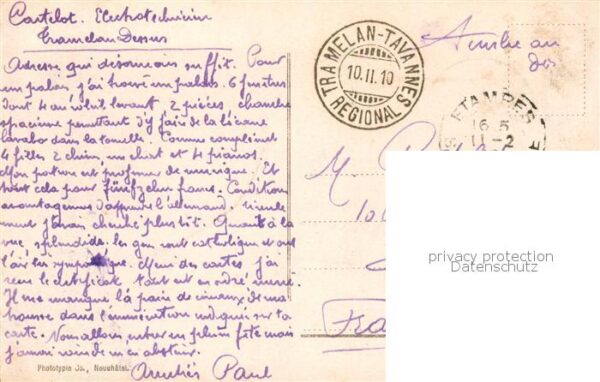 Castelot. Electrotechnicien
Tramelan Dessus
Adresse qui désormais suffit. Pour
un palais, j'ai trouvé un palais. 6 fenêtres
dont 4 au soleil levant, 2 pièces, chambre
spacieuse permettant d'y faire de la
lavabo dans la tourelle. Comme complément
4 filles 2 chiens, un chat et 4 pianos.
Mon patron est professeur de musique. Et
tout cela pour fünfzehn francs. Conditions
avantageuses d'apprendre l'allemand.
ment j'avais cherché plus tôt. Quant à la
vue splendide, les gens sont catholiques et ont
l'air sympathique. Merci des cartes, j'ai
reçu le certificat tout est en ordre merci.
Il me manque la paire de ciseaux de ma
trousse dans l'énumération indiquée sur ta
carte. Nous allons entrer en pleine fête mais
j'aurai soin de m'en abstenir.
Amitiés Paul
Phototypie Co., Neuchâtel
TRAMELAN-TAVANNES
10.II.10
REGIONAL
ETAMPES
16 5
11-2
au
dos
M.
Fra
privacy protection
Datenschutz